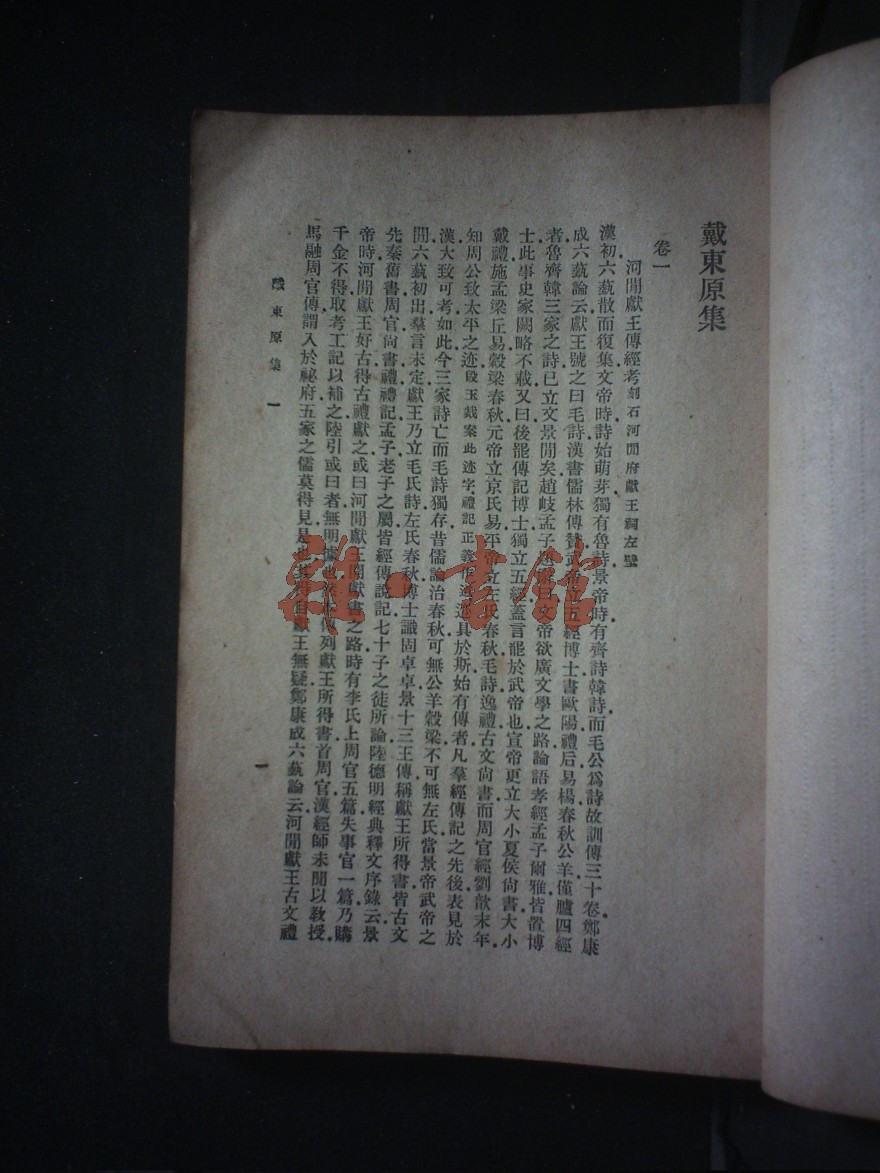 戴東原集
卷一
河閒獻王傳經考刻石河閒府獻王祠左壁
漢初六藝散而復集文帝時詩始萌芽獨有魯詩景帝時有齊詩韓詩而毛公爲詩故訓傳三十卷鄭康
成六藝論云獻王號之曰毛詩漢書儒林傳贊武帝立五經博士書歐陽禮后易楊春秋公羊僅臚四經
者魯齊韓三家之詩已立文景閒矣趙岐孟子題辭文帝欲廣文學之路論語孝經孟子爾雅皆置博
士此事史家闕略不載又曰後罷傳記博士獨立五經蓋言罷於武帝也宣帝更立大小夏侯尙書大小
戴禮施孟梁丘易穀梁春秋元帝立京氏易平帝立左氏春秋毛詩逸禮古文尙書而周官經劉歆末年
知周公致太平之迹段玉裁案此迹字禮記正義具於斯始有傳者凡羣經傳記之先後表見於
漢大致可考如此今三家詩亡而毛詩獨存昔儒論治春秋可無公羊穀梁不可無左氏當景帝武帝之
閒六藝初出羣言未定獻王乃立毛氏詩左氏春秋博士識固卓卓景十三王傳稱獻王所得書皆古文
先秦舊書周官尙書禮禮記孟子老子之屬皆經傳說記七十子之徒所論陸德明經典釋文序錄云景
帝時河閒獻王好古得古禮獻之或曰河閒獻王開獻書之路時有李氏上周官五篇失事官一篇乃購
千金不得取考工記以補之陸引或曰者無明據也列獻王所得書首周官漢經師未聞以敎授
馬融周官傳謂入於祕府五家之儒莫得見是也其得自獻王無疑鄭康成六藝論云河閒獻王古文禮
戴東原集 一
一
雜·書館